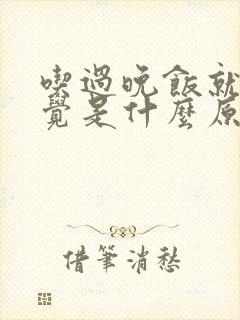 喫過晚飯就
覺是什麼原
借筆消愁